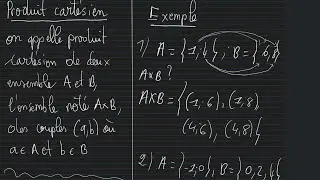 Produit cartésien
on appelle produit
cartésien de deux
ensemble A et B,
l'ensemble noté A×B,
des couples (a,b) où
a ∈ A et b ∈ B
Exemple
1) A = {1,4}, B = {6,8}
A×B ?
A×B = {(1,6), (1,8)
(4,6), (4,8)}
2) A = {-1,0}, B = {0,2,4}